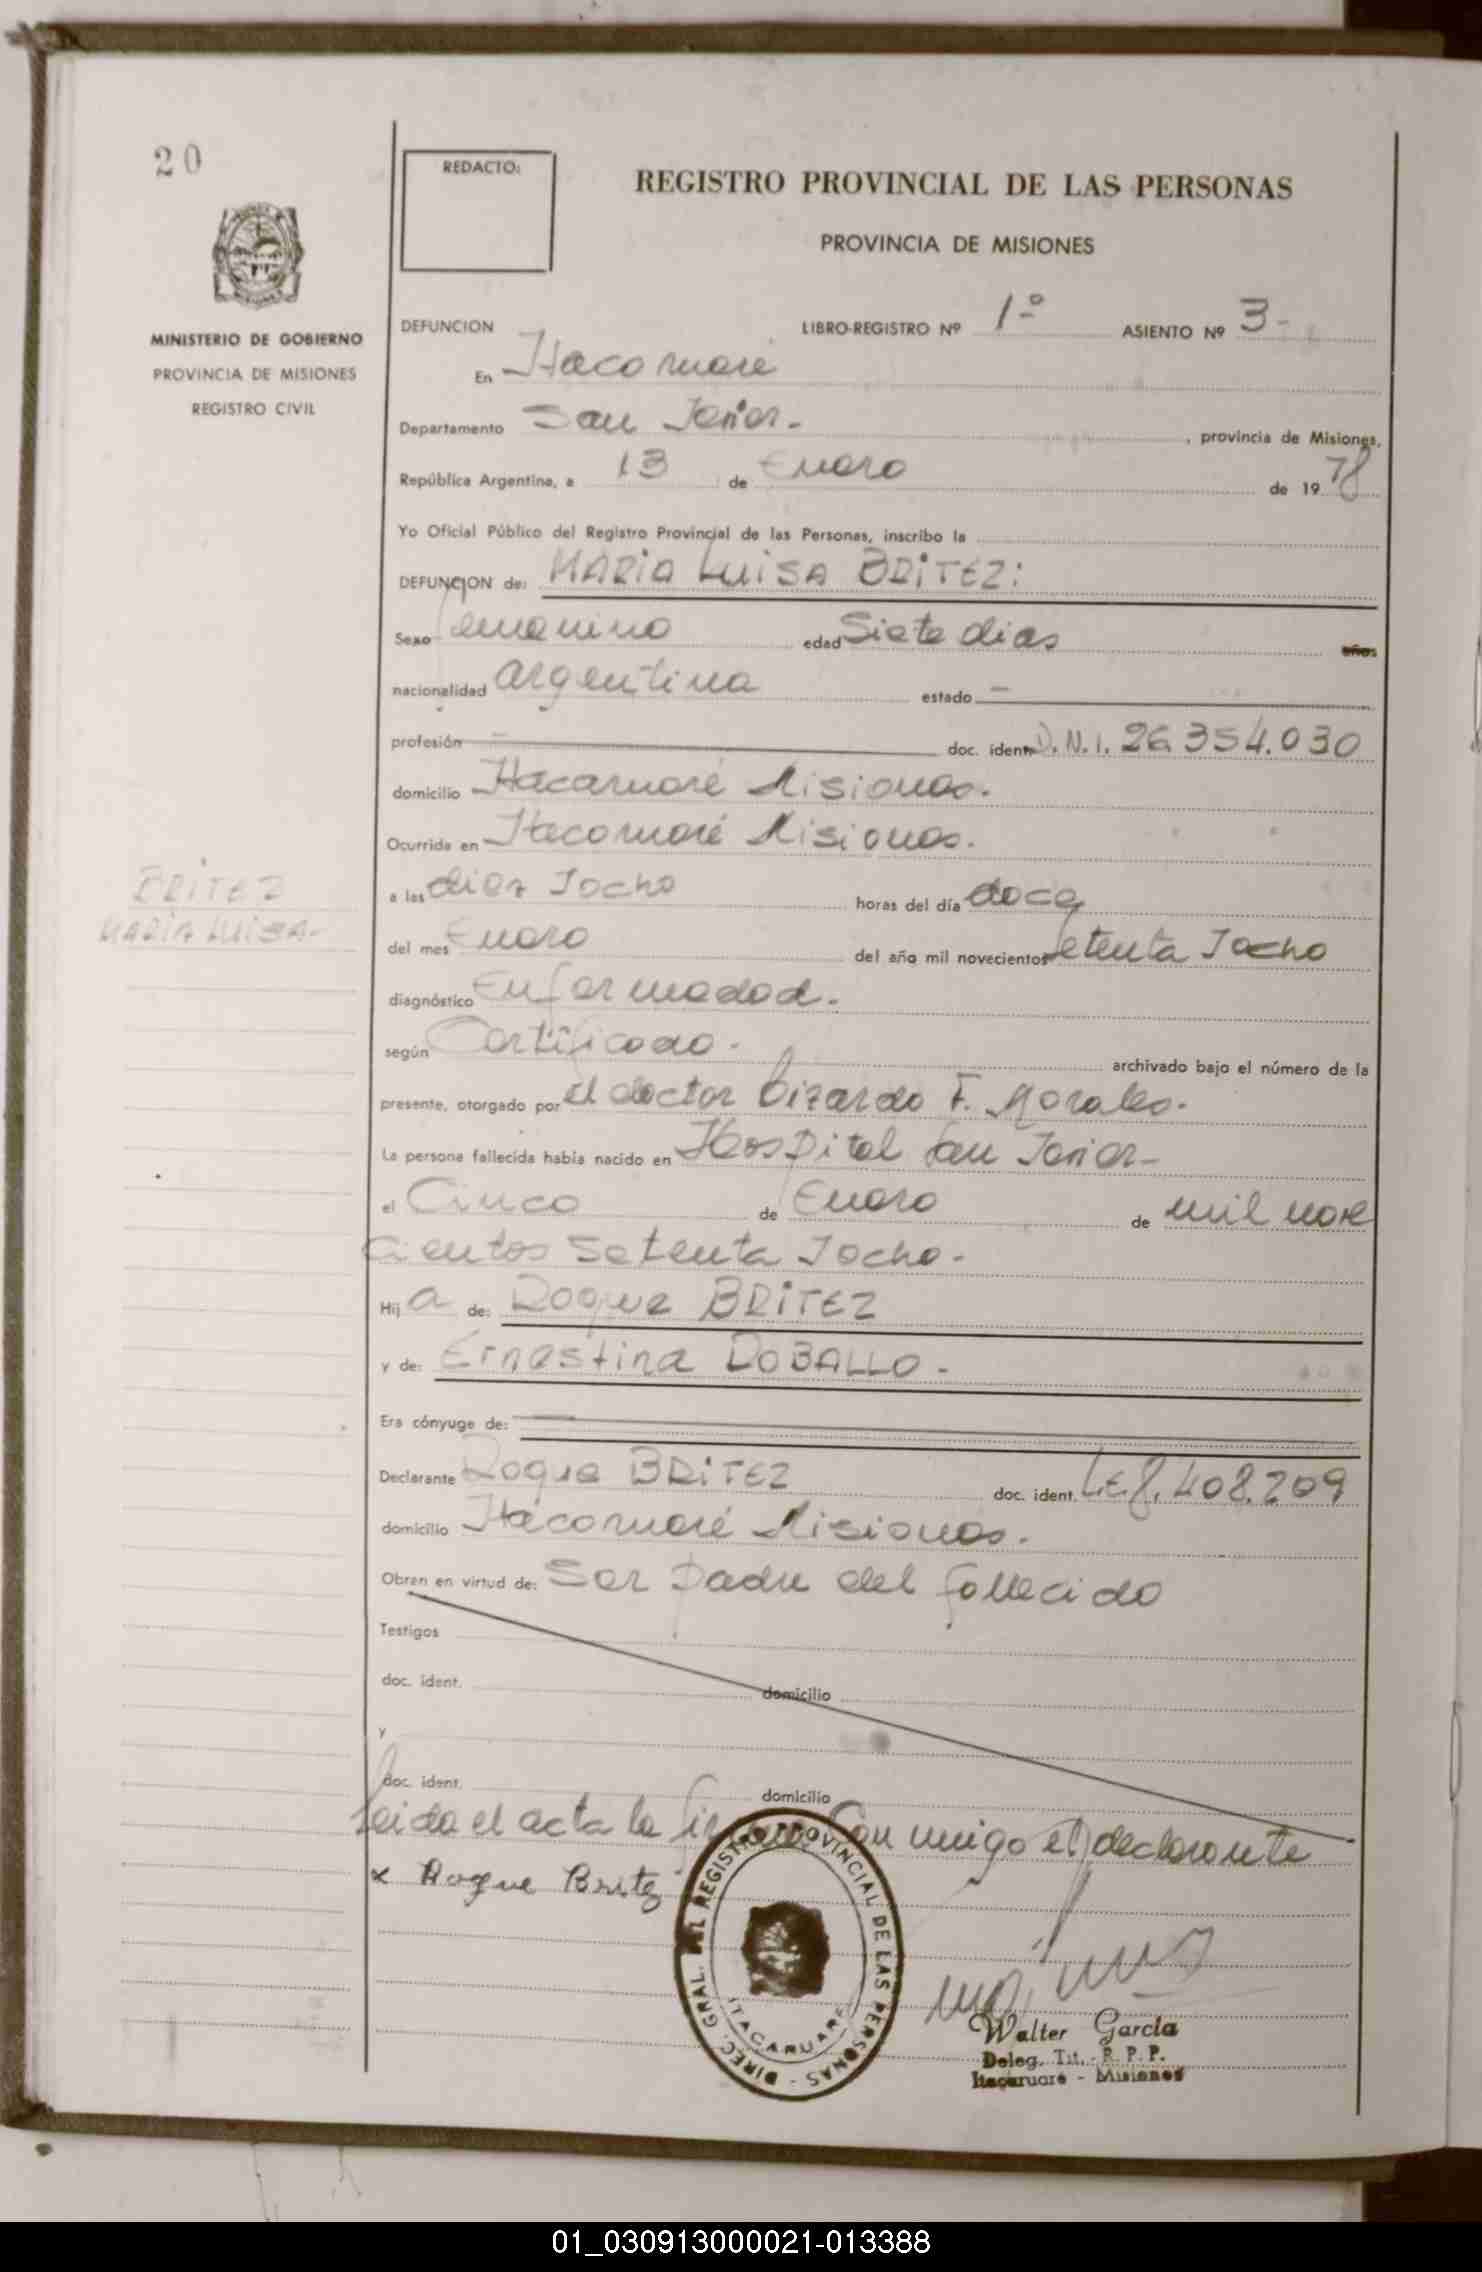 20
REDACTO:
REGISTRO PROVINCIAL DE LAS PERSONAS
PROVINCIA DE MISIONES
MINISTERIO DE GOBIERNO
PROVINCIA DE MISIONES
REGISTRO CIVIL
DEFUNCION LIBRO-REGISTRO Nº 1º ASIENTO Nº 3-
En Itacaruaré
Departamento San Javier.- , provincia de Misiones,
República Argentina, a 13 de Enero de 1978
Yo Oficial Público del Registro Provincial de las Personas, inscribo la
DEFUNCION de: MARIA LUISA BRITEZ:
Sexo femenino edad Siete dias años
nacionalidad argentina estado —
profesión — doc. ident. D.N.I. 26.354.030
domicilio Itacaruaré Misiones.
Ocurrida en Itacaruaré Misiones.
a las diez y ocho horas del día doce
del mes Enero del año mil novecientos setenta y ocho
diagnóstico Enfermedad.
según Certificado. archivado bajo el número de la
presente, otorgado por el doctor Lizardo F. Morales.
La persona fallecida había nacido en Hospital San Javier-
el Cinco de Enero de mil nove
cientos setenta y ocho.
Hij a de: Roque BRITEZ
y de: Ernestina ROBALLO.
Era cónyuge de: —
Declarante Roque BRITEZ doc. ident. L.E. 8.408.209
domicilio Itacaruaré Misiones.
Obran en virtud de: Ser padre del fallecido
Testigos
doc. ident. domicilio
y
doc. ident. domicilio
Leida el acta la firma Con migo el declarante
x Roque Britez
BRITEZ
MARIA LUISA-
DIREC. GRAL. DEL REGISTRO PROVINCIAL DE LAS PERSONAS -
ITACARUARE
Walter García
Deleg. Tit. - R. P. P.
Itacaruare - Misiones
01_030913000021-013388